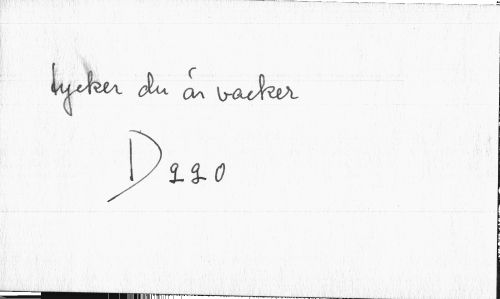 tycker du är vacker
D 220